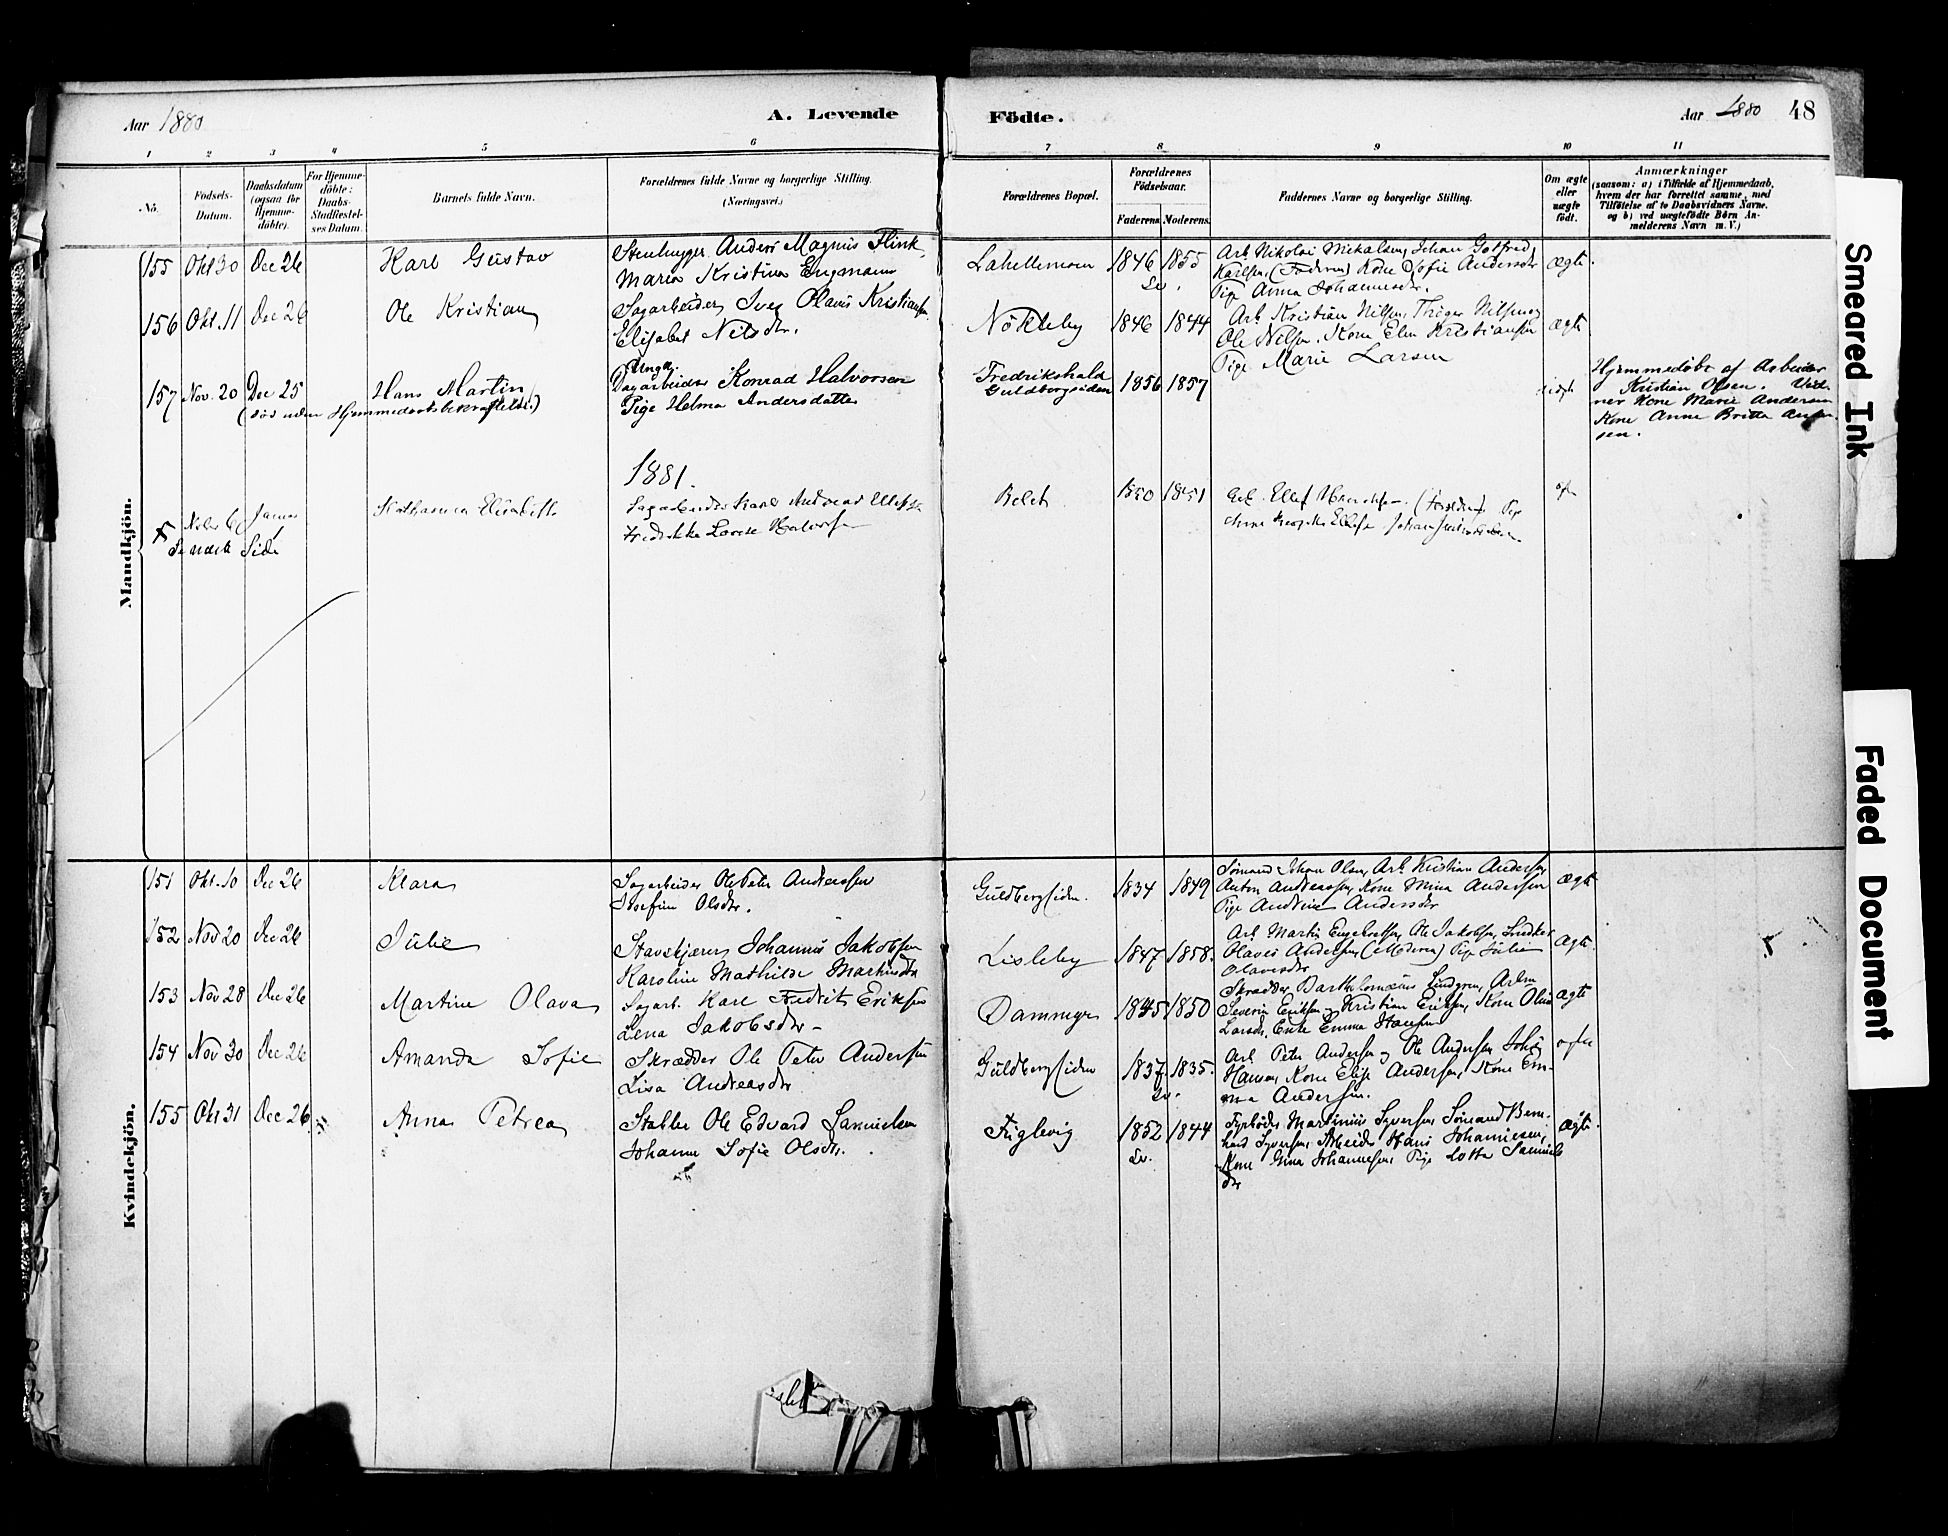 Aar 1880
A. Levende
Födte.
Aar 1880
48
1 2 3 4 5 6 7 8 9 10 11
No.
Födsels-Datum.
Daabsdatum (ogsaa for Hjemme-döbte).
For Hjemme-döbte: Daabs-Stadfæstel-ses Datum.
Barnets fulde Navn.
Forældrenes fulde Navne og borgerlige Stilling.
(Næringsvei.)
Forældrenes Bopæl.
Forældrenes Födselsaar.
Faderens Moderens.
Faddernes Navne og borgerlige Stilling.
Om ægte eller uægte födt.
Anmærkninger
(saasom: a) i Tilfælde af Hjemmedaab,
hvem der har forrettet samme, med
Tilföielse af to Daabsvidners Navne,
og b) ved uægtefödte Börn An-
melderens Navn m. V.)
Mandkjön.
155 Okt 30 Dec 26 Karl Gustav
Stenhugger Anders Magnus Flink
Maria Kristina Engmann
Lahellemoen 1846 1855
Sv.
Arb. Nikolai Mickalsen, Johan Gotfred
Karlsen, (Faderen) Kone Sofie Andersdr
Pige Anna Johannesdr.
ægte.
156 Okt. 11 Dec 26 Ole Kristian
Sagarbeider Iver Olaus Kristiansen
Elisabet Nilsdr.
Nökleby 1846 1844
Arb. Kristian Nilsen, Thorger Nilsen og
Ole Nilsen, Kone Elen Kristiansen
Pige Marie Larsen
ægte
157 Nov. 20 Dec 25 Hans Martin
(död uden Hjemmedaabsbekræftelse.)
Ungk.
Dagarbeider Konrad Halvorsen
Pige Helma Andersdatter
Fredrikshald
Guldbergsiden
1856 1857
uægte
Hjemmedöbt af Arbeider
Kristian Olsen. Vid-
ner Kone Marie Andersen
Kone Anne Britte
sen.
1881.
Novbr 6 Januar
Se næste Side
Katharina Elisabeth
Sagarbeider Karl Andreas Ellefsen
Fredrikke Lovise Halvorsen
1850 1851
Arb. Ellef (Forældrene) Pige
Kvindekjön.
151 Okt. 10 Dec 26 Klara
Sagarbeider Ole Peter Andreassen
Josefine Olsdr.
Guldbergsiden. 1834 1849
Sömand Johan Olsen, Arb. Kristian Andersen
Anton Andreassen, Kone Mina Andersen
Pige Andrine Andersdr
ægte
152 Nov 20 Dec 26 Julie
Stavskjærer Johannes Jakobsen
Karoline Mathilde Martinsdtr
Lisleby 1847 1858.
Arb. Martin Engebretsen, Ole Jakobsen, Snedker
Olaves Andersen, (Moderen) Pige Julie
Olavesdr
ægte.
153 Nov 28 Dec 26 Martine Olava
Sagarb. Karl Fredrik Eriksen
Lena Jakobsdr
Dammyr 1845 1850
Skrædder Bartholomæus Lindgren, Arbm
Severin Eriksen, Kristian Eriksen, Kone Olea
Larsdr, Enke Emma Hansen
ægte
154 Nov 30 Dec 26 Amanda Sofie
Skrædder Ole Peter Andersen
Lisa Andreasdr
Guldbergsiden 1837 1835.
Sv.
Arb. Peter Andersen og Ole Andersen, Johs
Hansen, Kone Elise Andersen, Kone Em-
ma Andersen.
ægte
155 Okt 31 Dec 26 Anna Petrea
Stabler Ole Edvard Samuelsen
Johanne Sofie Olsdr.
Fuglevig 1852 1844
Sv.
Fyrböder Martinius Syversen, Sömand Bern-
hard Syversen, Arbeider Hans Johannesen,
Kone Gina Johannesen, Pige Lotta Samuels
dr
ægte.
Smeared Ink
Faded Document